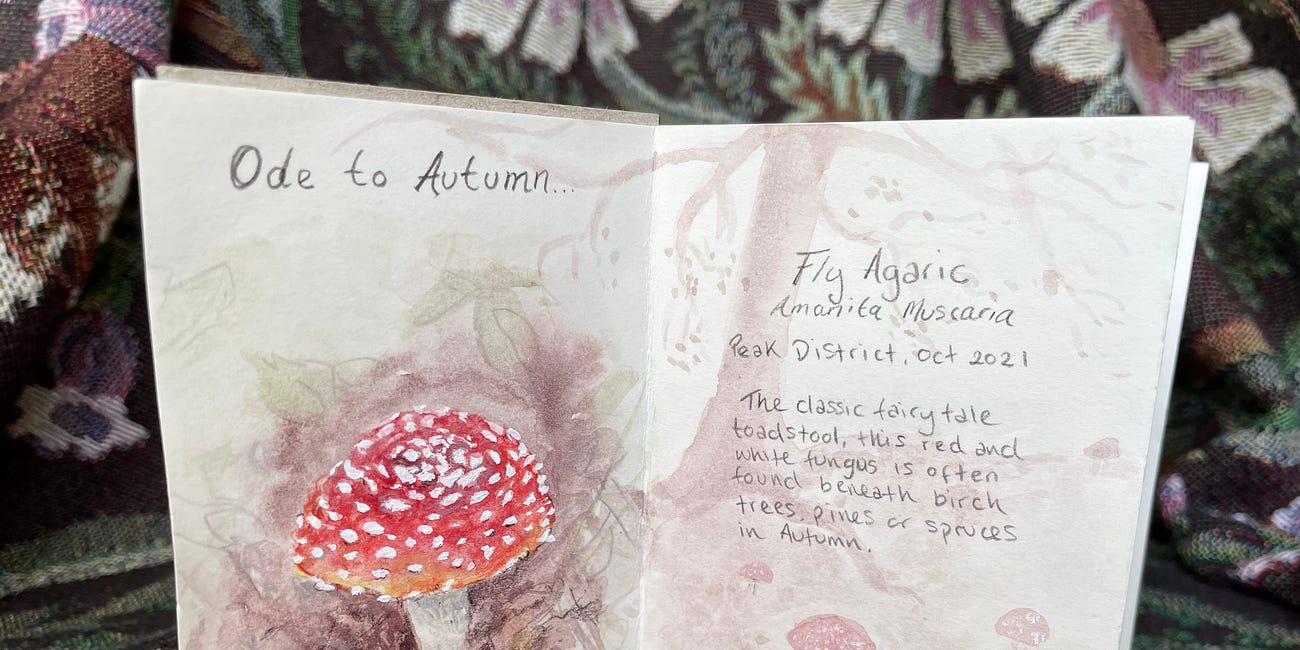 Ode to Autumn...
Fly Agaric
Amanita Muscaria
Peak District, Oct 2021
The classic fairytale
toadstool, this red and
white fungus is often
found beneath birch
trees, pines or spruces
in Autumn.